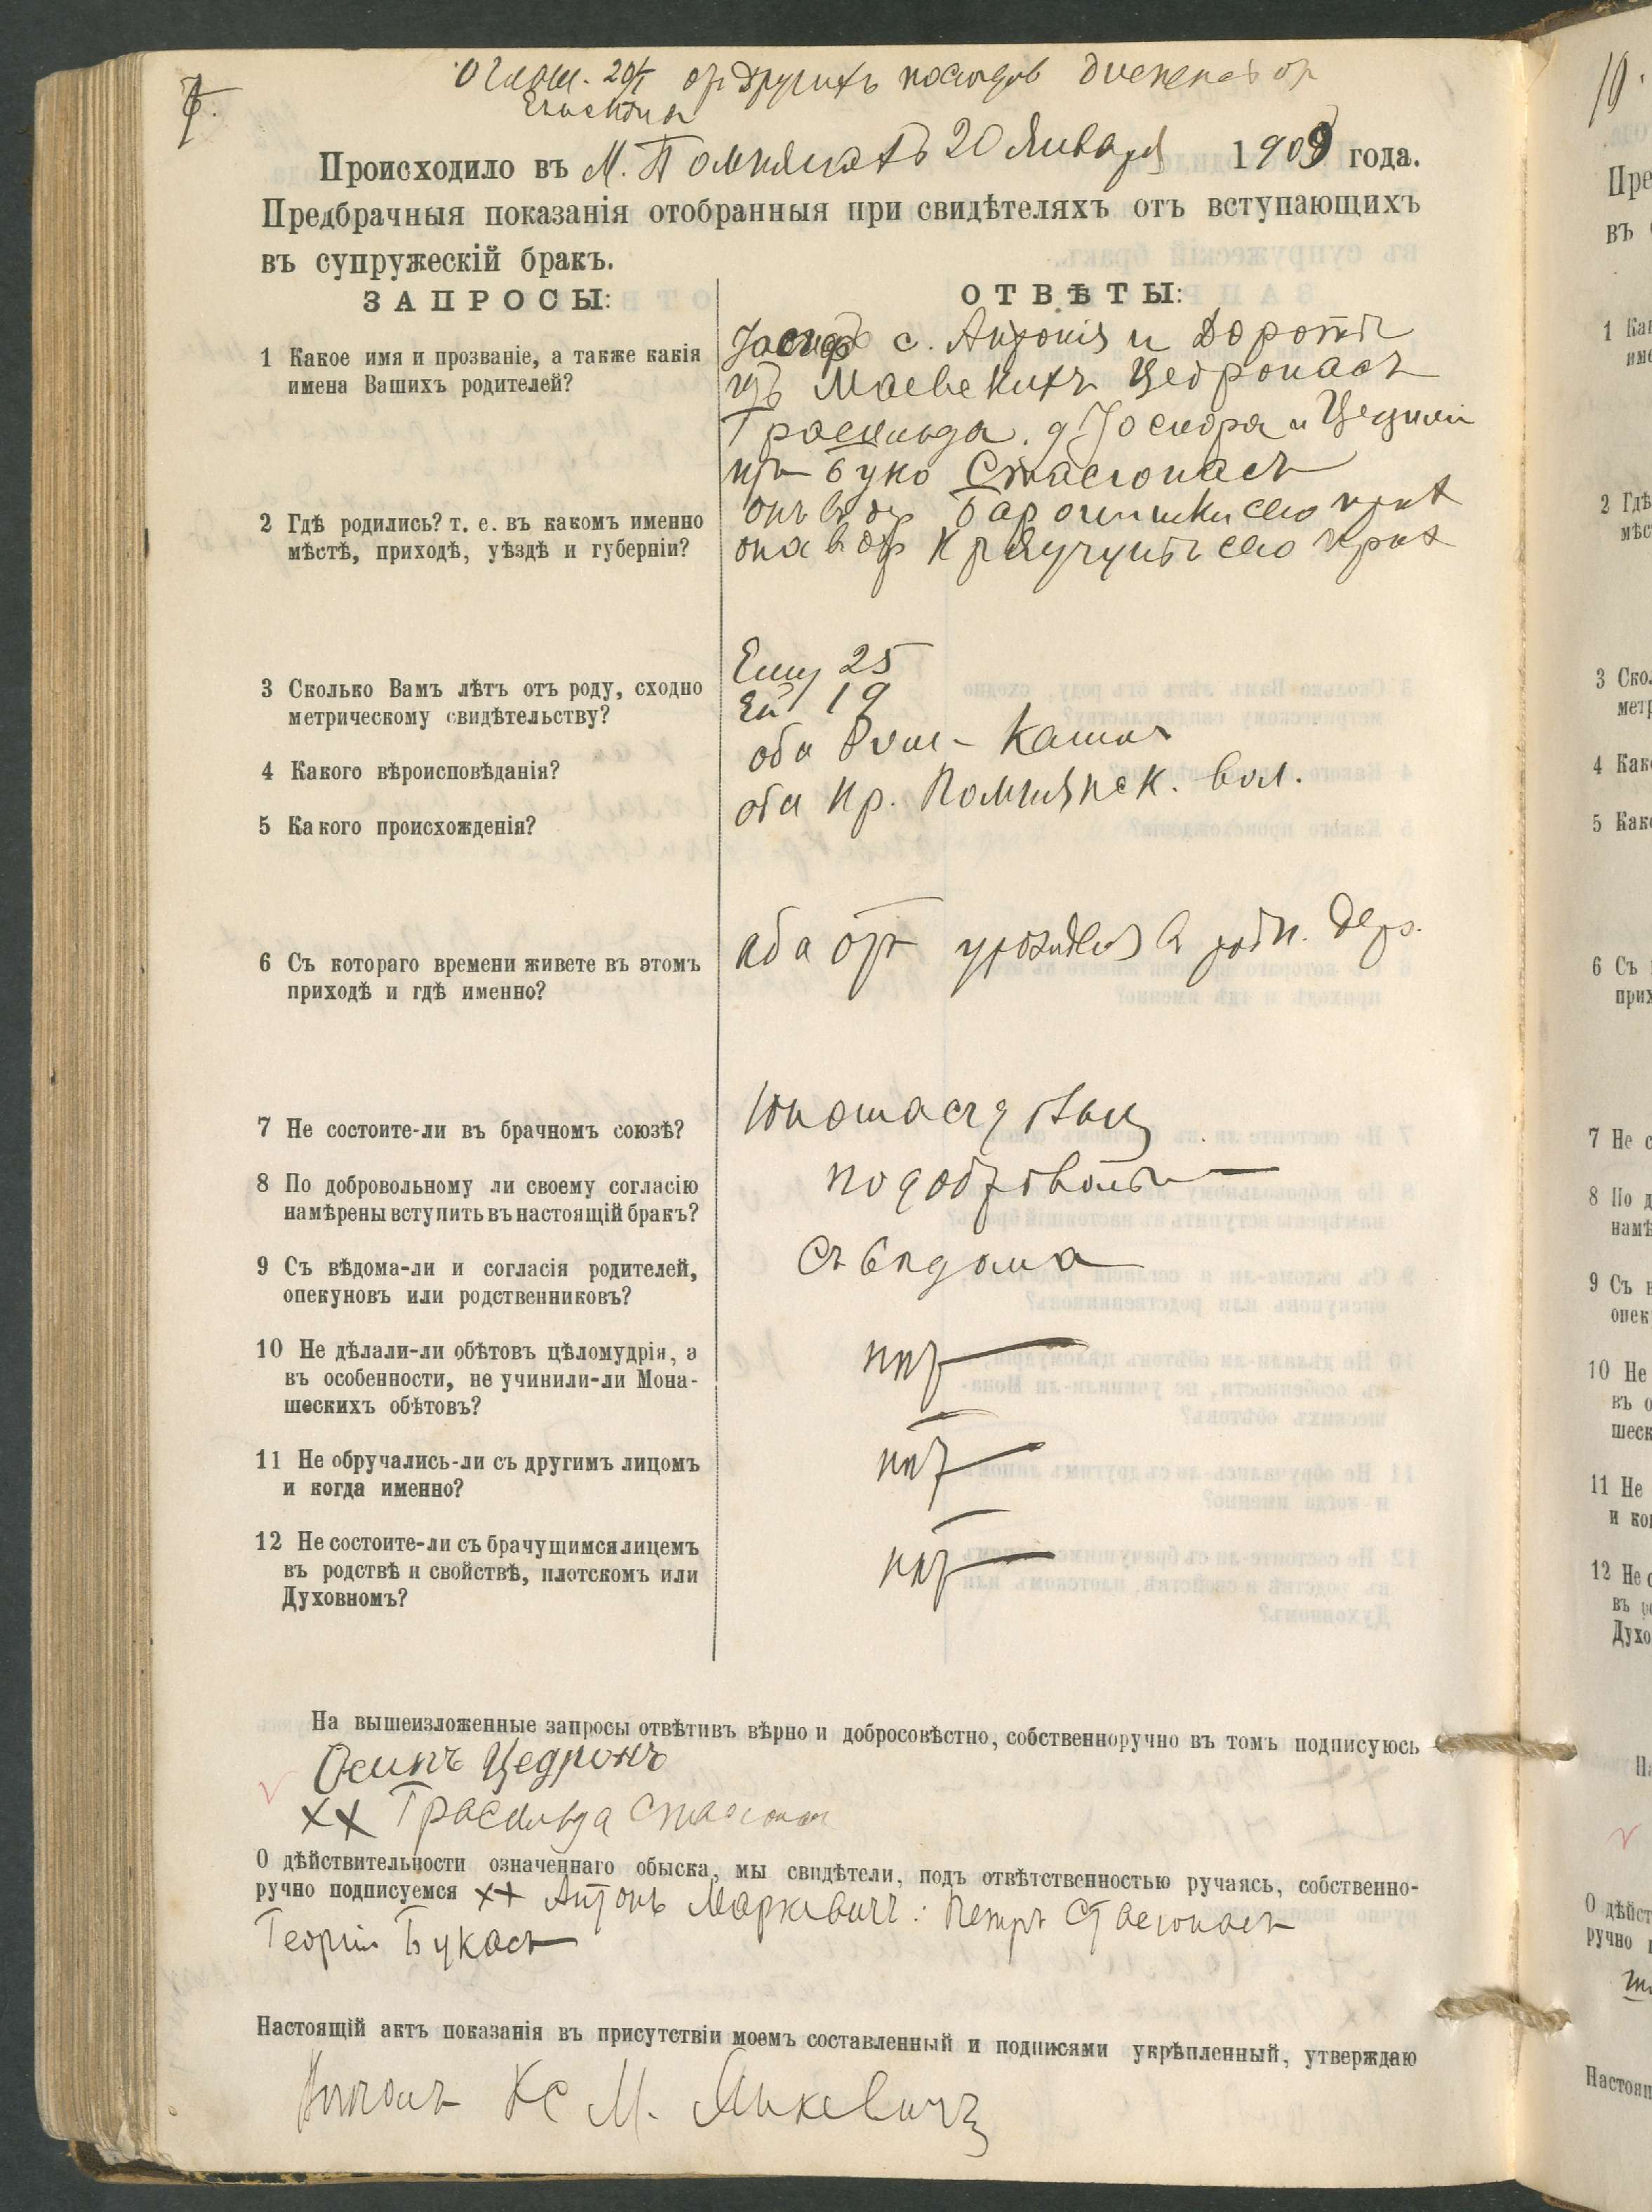 7.
Оглаш. 20/I от другихъ
Происходило въ М. Помпянахъ 20 Января 1909 года.
Предбрачныя показанія отобранныя при свидѣтеляхъ отъ вступающихъ
въ супружескій бракъ.
ЗАПРОСЫ:
ОТВѢТЫ:
1 Какое имя и прозваніе, а также какія
имена Вашихъ родителей?
Іосифъ с. Антонія и Доротѣи
изъ Маевскихъ Цедронасъ
Трасильда д. Іосифа и Цециліи
изъ Буко Стасюнасъ
2 Гдѣ родились? т. е. въ какомъ именно
мѣстѣ, приходѣ, уѣздѣ и губерніи?
онъ въ дер
она въ дер
3 Сколько Вамъ лѣтъ отъ роду, сходно
метрическому свидѣтельству?
Ему 25
Ей 19
4 Какого вѣроисповѣданія?
оба Рим-Катол
5 Какого происхожденія?
оба кр. Помпянск. вол.
6 Съ котораго времени живете въ этомъ
приходѣ и гдѣ именно?
оба отъ рожденія въ родн. дер.
7 Не состоите-ли въ брачномъ союзѣ?
юноша съ дѣвиц
8 По добровольному ли своему согласію
намѣрены вступить въ настоящій бракъ?
по добровольн
9 Съ вѣдома-ли и согласія родителей,
опекуновъ или родственниковъ?
съ вѣдома
10 Не дѣлали-ли обѣтовъ цѣломудрія, а
въ особенности, не учинили-ли Мона-
шескихъ обѣтовъ?
нѣт
11 Не обручались-ли съ другимъ лицомъ
и когда именно?
нѣт
12 Не состоите-ли съ брачущимся лицемъ
въ родствѣ и свойствѣ, плотскомъ или
Духовномъ?
нѣт
На вышеизложенные запросы отвѣтивъ вѣрно и добросовѣстно, собственноручно въ томъ подписуюсь
Осипъ Цедронъ
ХХ Трасильда Стасюнас
О дѣйствительности означеннаго обыска, мы свидѣтели, подъ отвѣтственностью ручаясь, собственно-
ручно подписуемся ХХ Антонъ Маркевичъ: Петръ Стасюнасъ
Георгій Букасъ
Настоящій актъ показанія въ присутствіи моемъ составленный и подписями укрѣпленный, утверждаю
Кс М. Янкевичъ